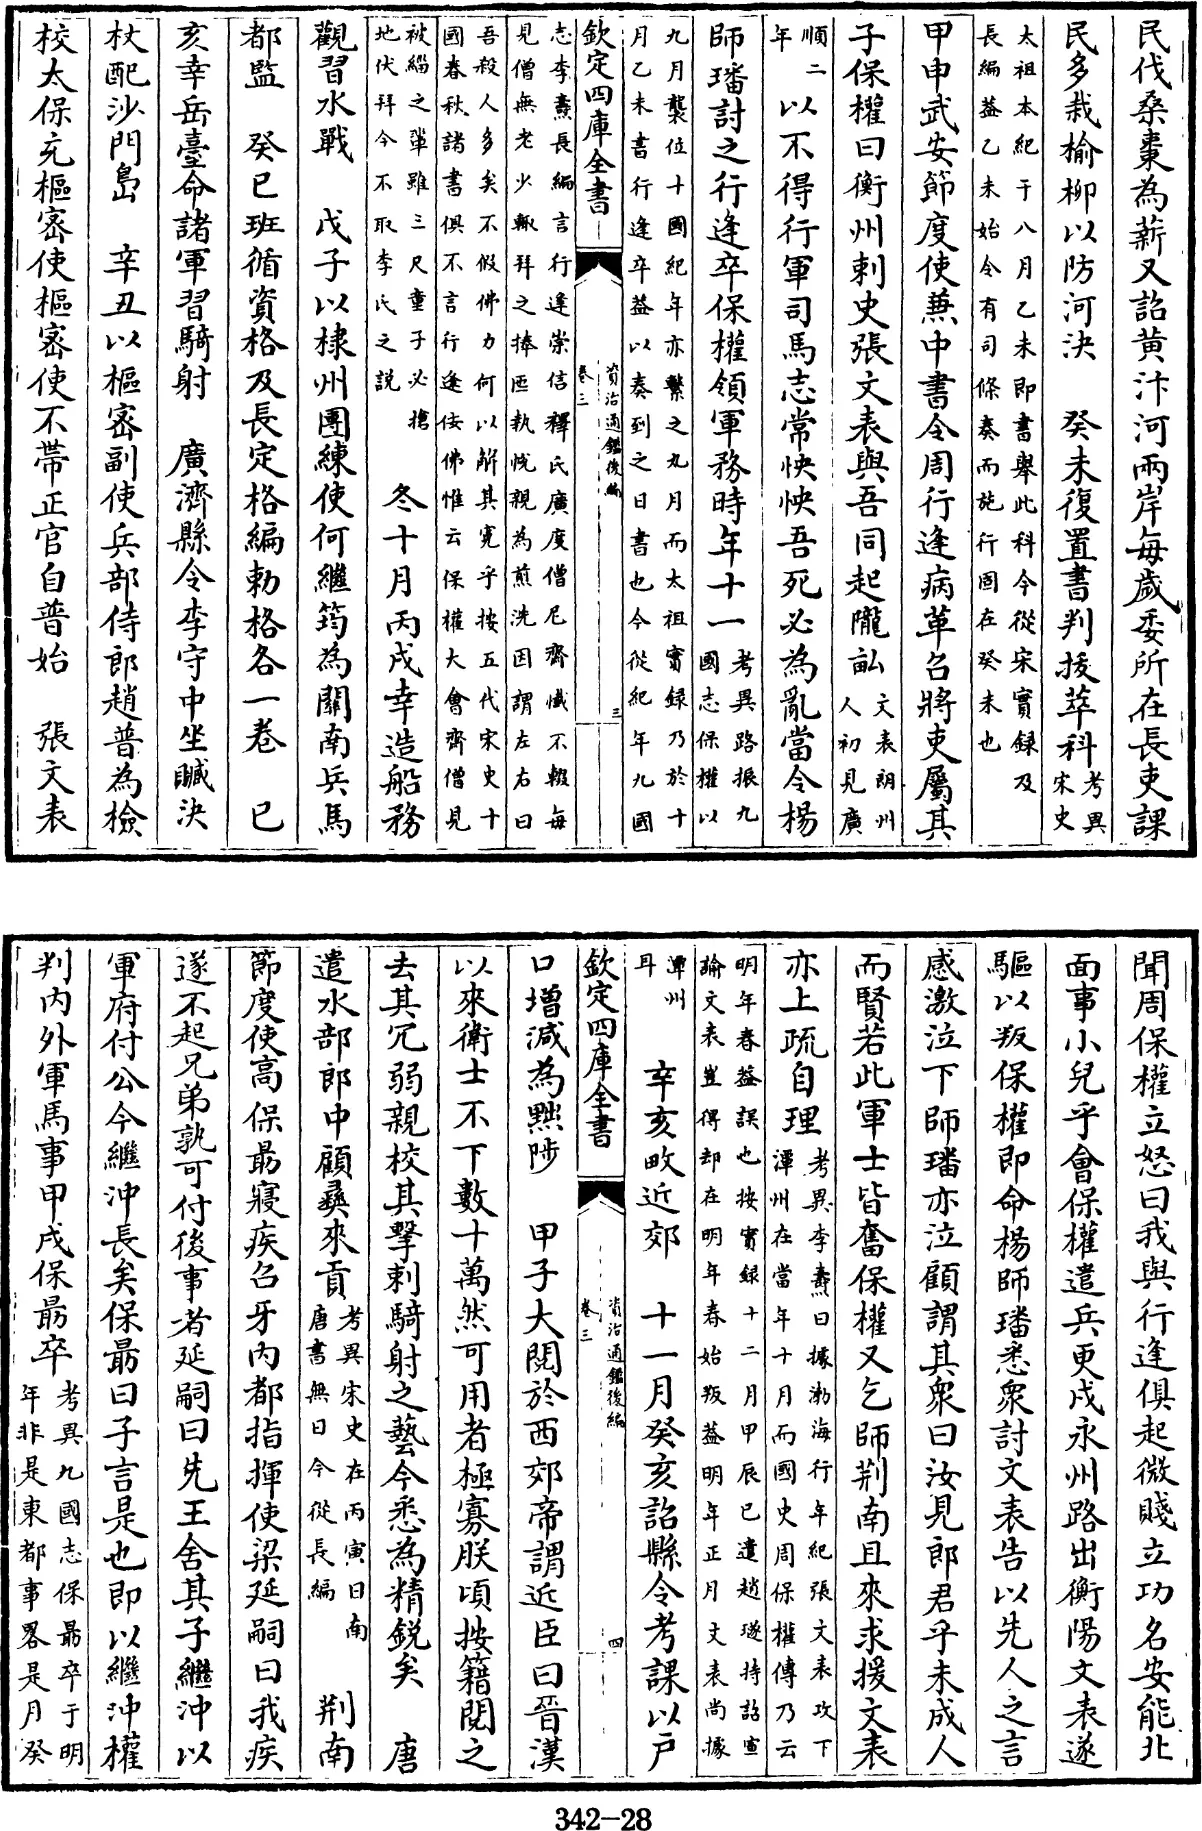 民伐桑棗為薪又詔黄汴河兩岸每歲委所在長吏課
民多栽榆柳以防河決　癸未復置書判拔萃科考異宋史
太祖本紀于八月乙未即書舉此科今從宋實録及
長編葢乙未始令有司條奏而施行固在癸未也
甲申武安節度使兼中書令周行逢病革召將吏屬其
子保權曰衡州刺史張文表與吾同起隴畝文表朗州人初見廣
順二年以不得行軍司馬志常怏怏吾死必為亂當令楊
師璠討之行逢卒保權領軍務時年十一考異路振九國志保權以
九月襲位十國紀年亦繫之九月而太祖實録乃於十
月乙未書行逢卒葢以奏到之日書也今從紀年九國
欽定四庫全書
資治通鑑後編
卷三
三
志李燾長編言行逢崇信釋氏廣度僧尼齋懺不輟每
見僧無老少輒拜之捧匜執帨親為煎洗因謂左右曰
吾殺人多矣不假佛力何以解其寃乎按五代宋史十
國春秋諸書俱不言行逢佞佛惟云保權大會齋僧見
被緇之輩雖三尺童子必搶
地伏拜今不取李氏之説
冬十月丙戌幸造船務
觀習水戰　戊子以棣州團練使何繼筠為關南兵馬
都監　癸巳班循資格及長定格編勅格各一卷　己
亥幸岳臺命諸軍習騎射　廣濟縣令李守中坐贓決
杖配沙門島　辛丑以樞密副使兵部侍郎趙普為檢
校太保充樞密使樞密使不帶正官自普始　張文表
聞周保權立怒曰我與行逢俱起微賤立功名安能北
面事小兒乎會保權遣兵更戍永州路出衡陽文表遂
驅以叛保權即命楊師璠悉衆討文表告以先人之言
感激泣下師璠亦泣顧謂其衆曰汝見郎君乎未成人
而賢若此軍士皆奮保權又乞師荆南且來求援文表
亦上疏自理考異李燾曰據渤海行年紀張文表攻下潭州在當年十月而國史周保權傳乃云
明年春葢誤也按實録十二月甲辰已遣趙璲持詔宣
諭文表豈得却在明年春始叛葢明年正月文表尚據
潭州耳　辛亥畋近郊　十一月癸亥詔縣令考課以戶
欽定四庫全書
資治通鑑後編
卷三
四
口增減為黜陟　甲子大閱於西郊帝謂近臣曰晉漢
以來衛士不下數十萬然可用者極寡朕頃按籍閱之
去其冗弱親校其擊刺騎射之藝今悉為精鋭矣　唐
遣水部郎中顧彝來貢考異宋史在丙寅日南唐書無日今從長編　荆南
節度使高保勗寢疾召牙内都指揮使梁延嗣曰我疾
遂不起兄弟孰可付後事者延嗣曰先王舍其子繼沖以
軍府付公今繼沖長矣保勗曰子言是也即以繼沖權
判内外軍馬事甲戌保勗卒考異九國志保勗卒于明年非是東都事畧是月癸
342-28